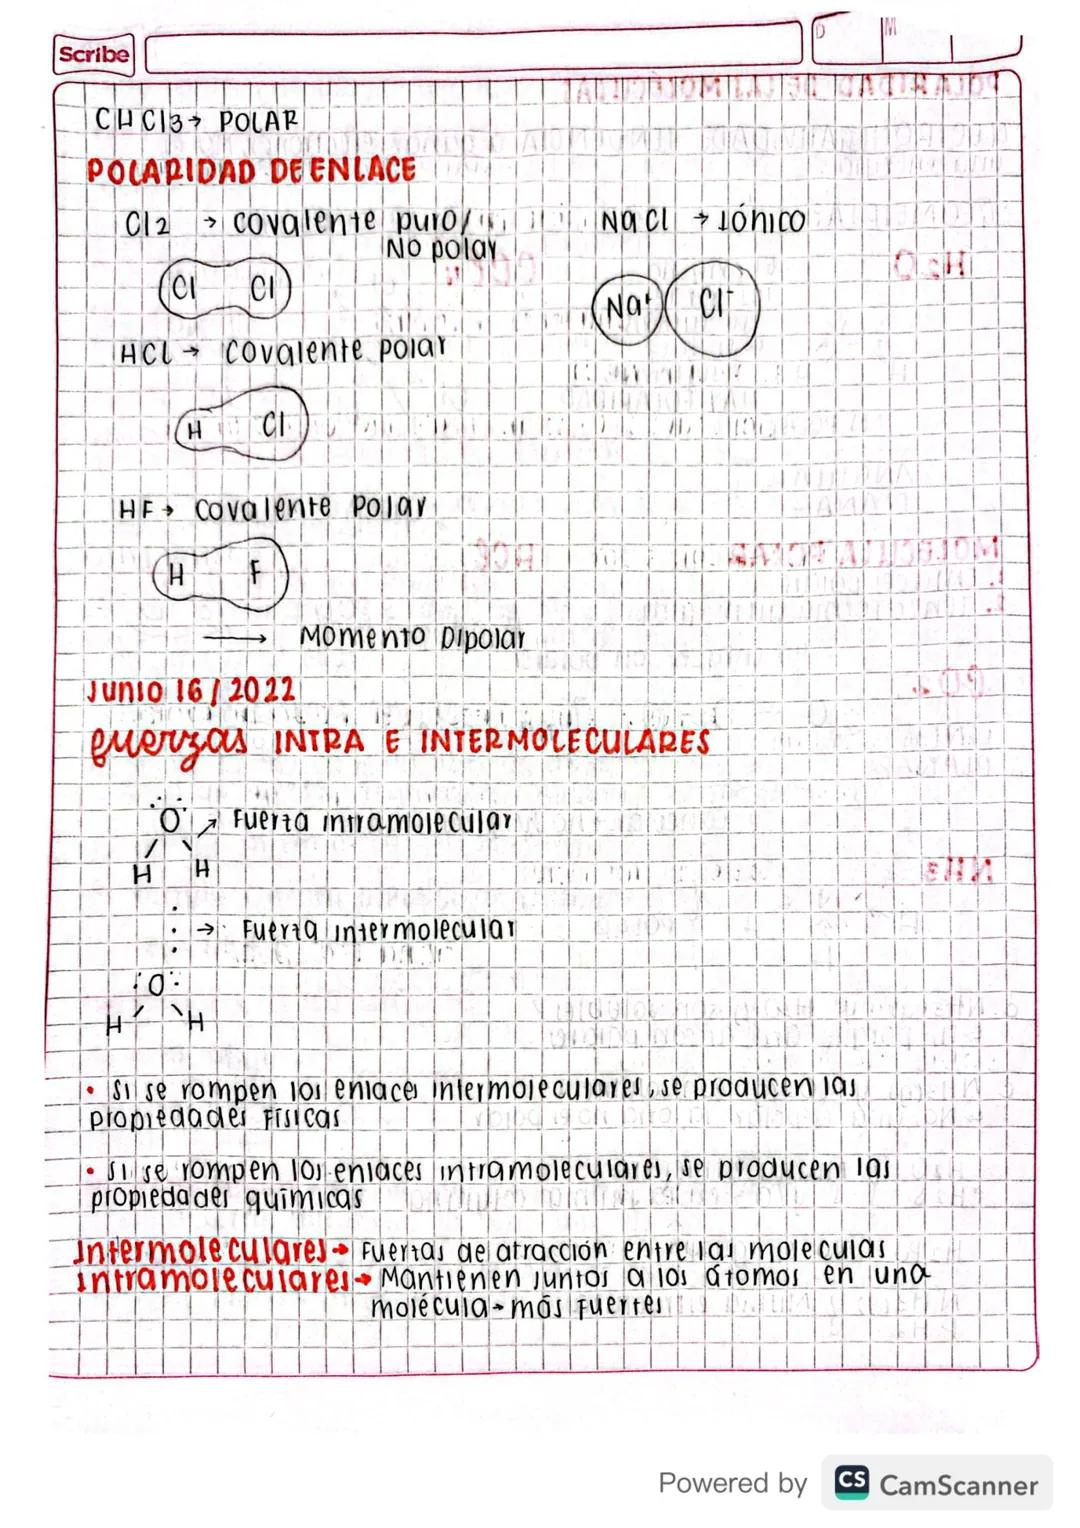 Scribe
D
M
CHCl3 → POLAR
POLARIDAD DE ENLACE
Cl2 → covalente puro/
No polar
NaCl → Iónico
Cl Cl
Na+ Cl-
HCl → covalente polar
H Cl
HF → covalente Polar
H F
→ Momento Dipolar
Junio 16 / 2022
fuerzas INTRA E INTERMOLECULARES
O → Fuerza intramolecular
H H
→ Fuerza intermolecular
O
H H
• Si se rompen los enlaces intermoleculares, se producen las
propiedades Físicas
• Si se rompen los enlaces intramoleculares, se producen las
propiedades químicas
Intermoleculares → Fuerzas de atracción entre las moleculas
intramoleculares → Mantienen juntos a los átomos en una
molécula → más fuertes
Powered by CS CamScanner